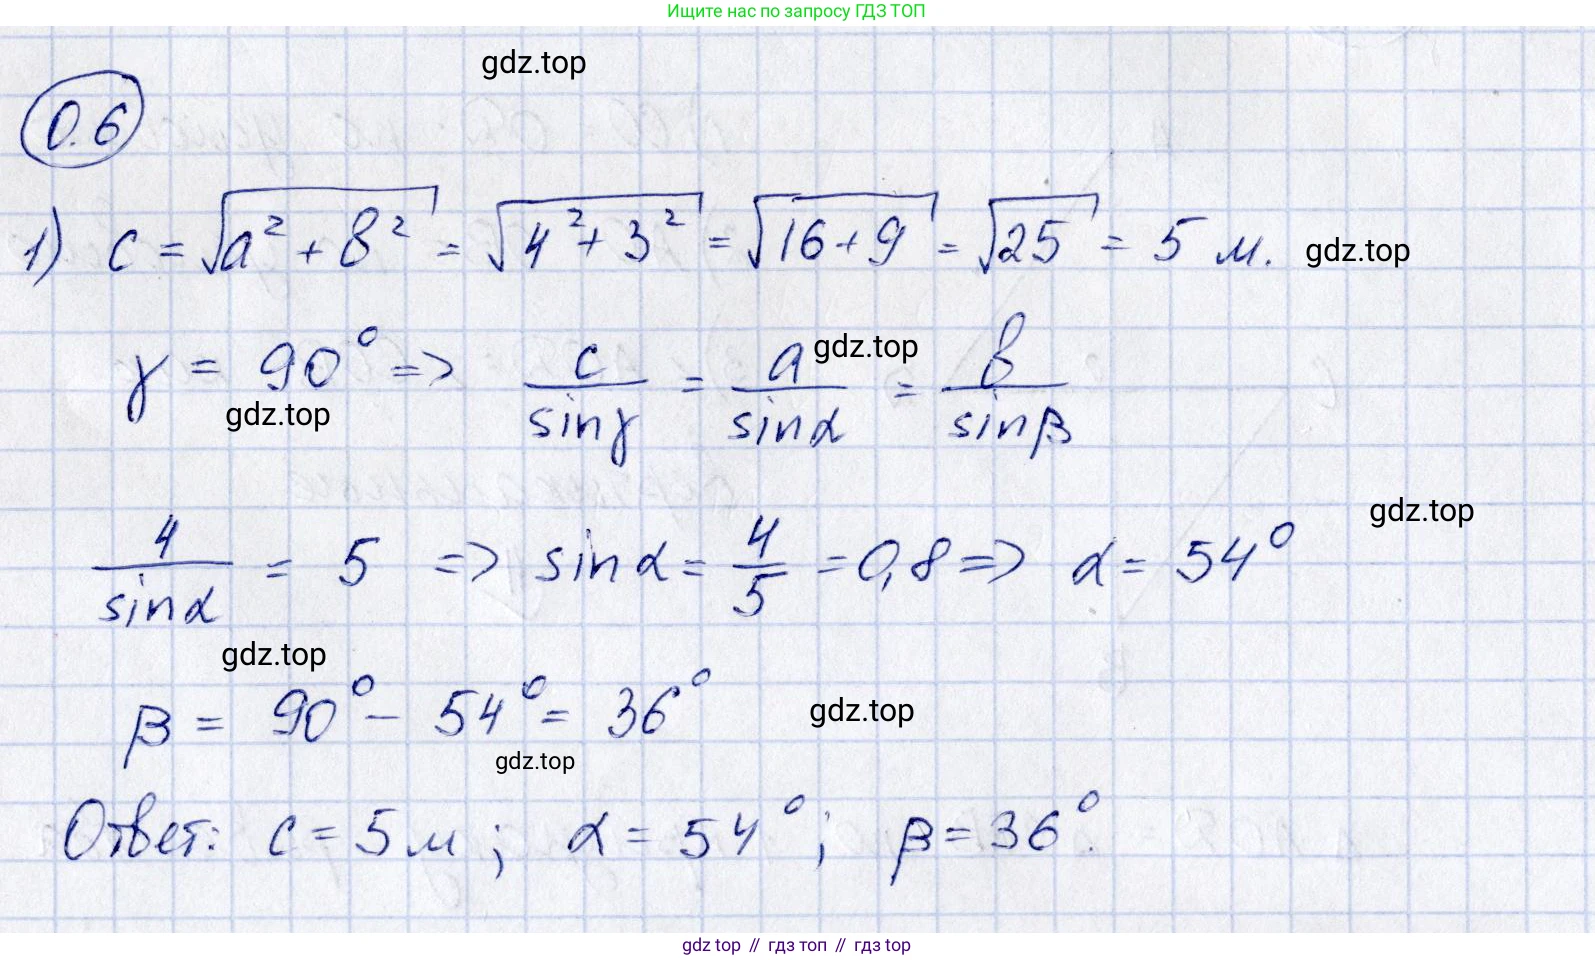 Ищите нас по запросу ГДЗ ТОП
gdz.top
0.6
1) c = √(a² + b²) = √(4² + 3²) = √(16 + 9) = √25 = 5 м. gdz.top
γ = 90° => c/sinγ = a/sinα = b/sinβ
gdz.top
gdz.top
gdz.top
4/sinα = 5 => sinα = 4/5 = 0,8 => α = 54°
gdz.top
β = 90° - 54° = 36° gdz.top
gdz.top
Ответ: c = 5 м ; α = 54° ; β = 36°.
gdz top // гдз топ // гдз top